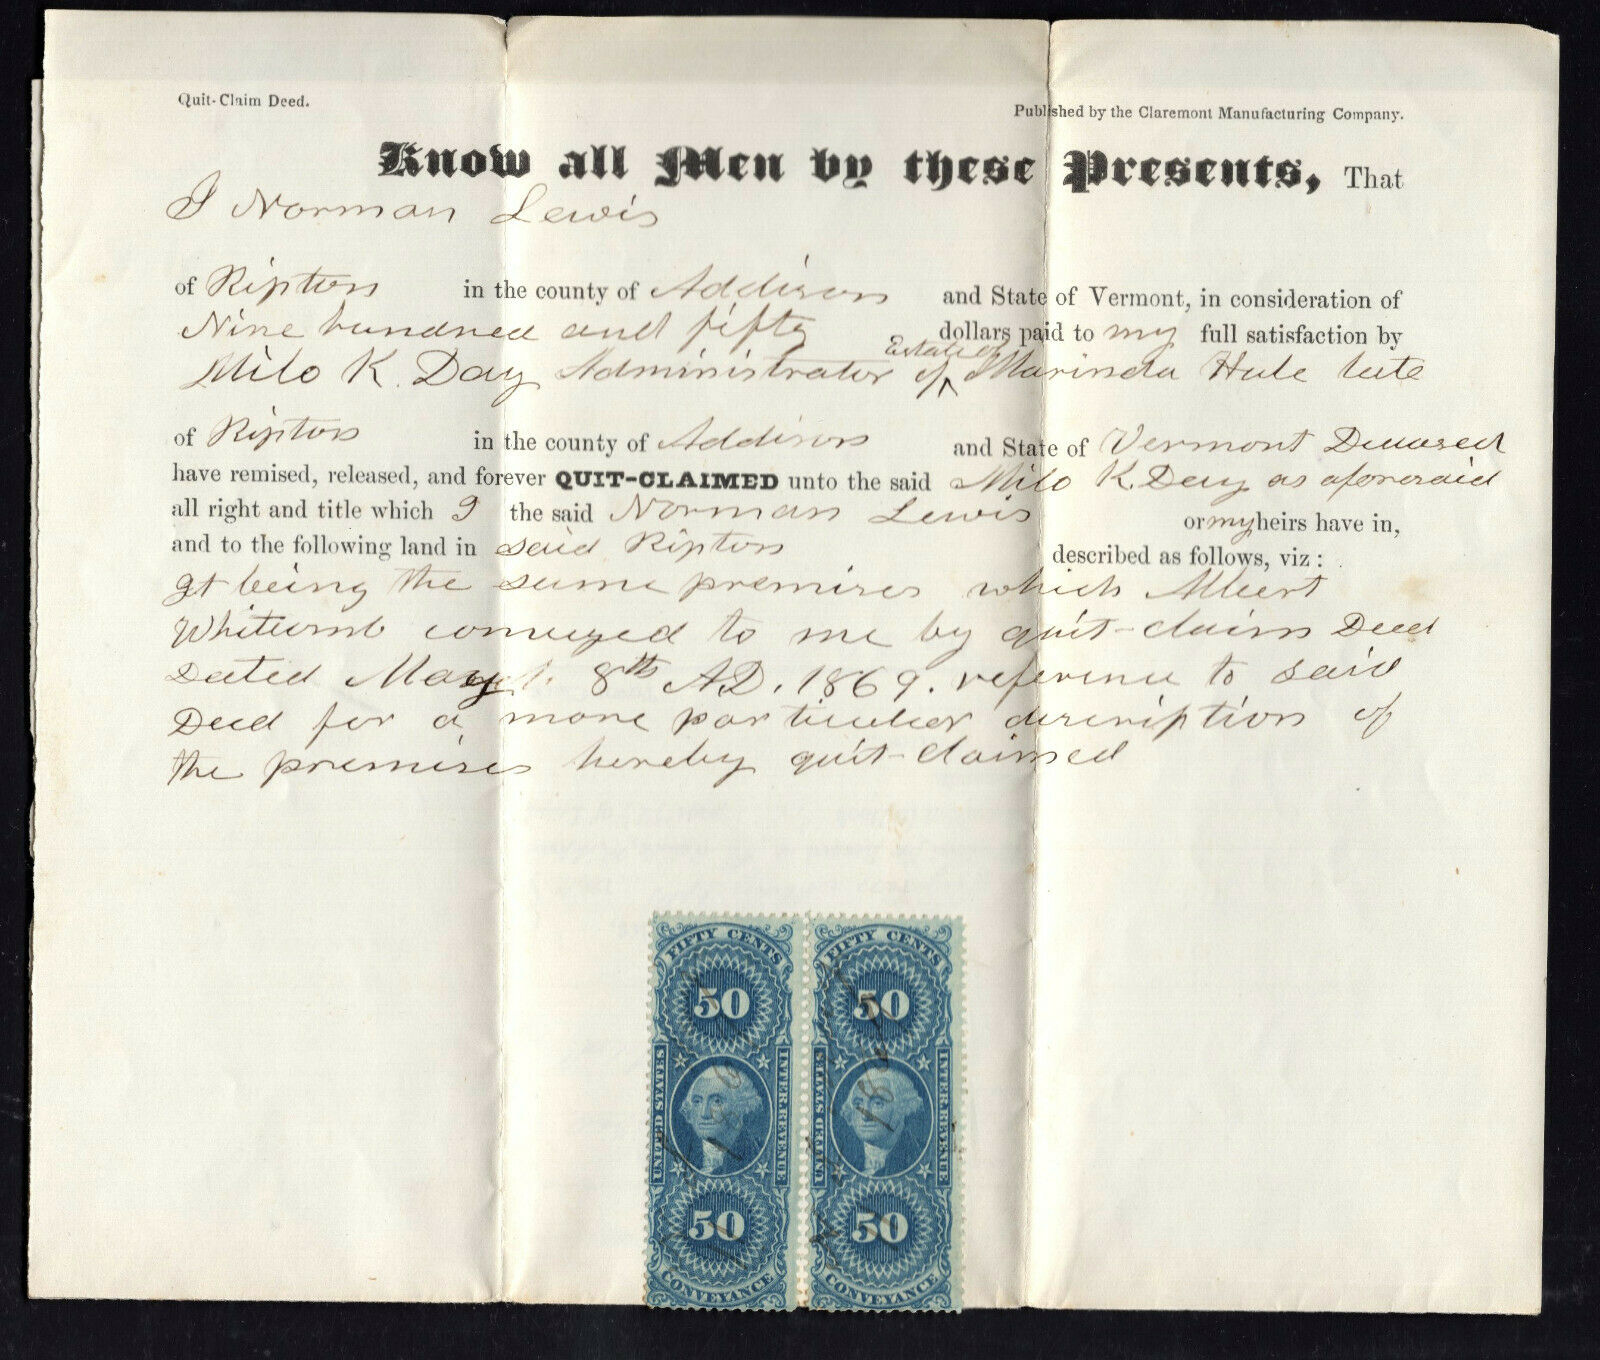 Quit-Claim Deed.
Published by the Claremont Manufacturing Company.
Know all Men by these Presents, That
I Norman Lewis
of Ripton in the county of Addison and State of Vermont, in consideration of
Nine hundred and fifty dollars paid to my full satisfaction by
Milo K. Day Administrator of ^ Estate of Marinda Hale late
of Ripton in the county of Addison and State of Vermont Deceased
have remised, released, and forever QUIT-CLAIMED unto the said Milo K. Day as aforesaid
all right and title which I the said Norman Lewis or my heirs have in,
and to the following land in said Ripton described as follows, viz:
It being the same premises which Albert
Whitcomb conveyed to me by quit-claim Deed
Dated May 8th A.D. 1869. reference to said
Deed for a more particular description of
the premises hereby quit-claimed
FIFTY CENTS FIFTY CENTS
50 50
UNITED STATES INTER. REVENUE UNITED STATES INTER. REVENUE
50 50
CONVEYANCE CONVEYANCE